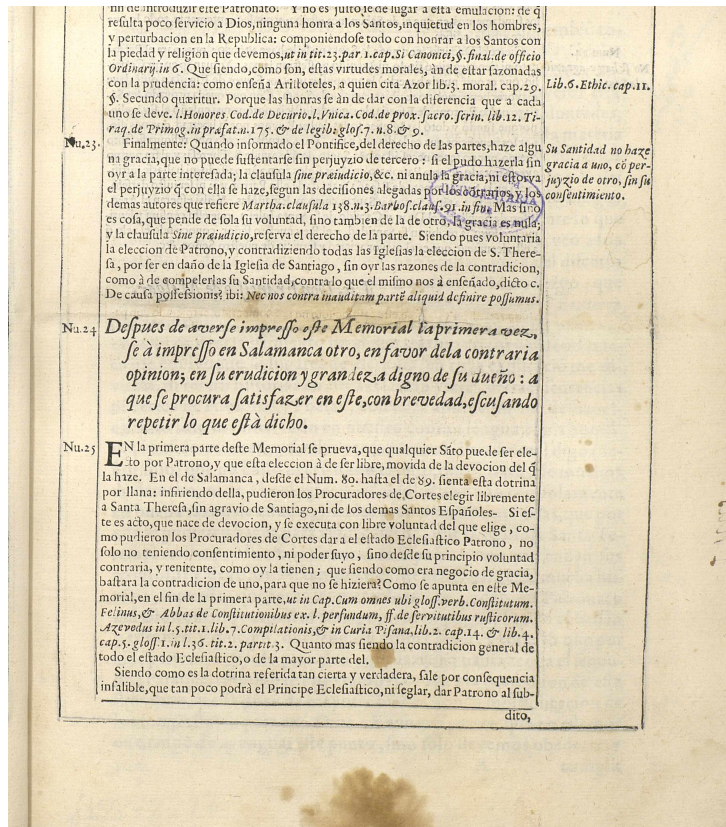 nin de introduzir este Patronato. Y no es justo, se dè lugar a esta emulacion: de q̃
resulta poco servicio a Dios, ninguna honra a los Santos, inquietud en los hombres,
y perturbacion en la Republica: componiendose todo con honrar a los Santos con
la piedad y religion que devemos, ut in tit. 23. par 1. cap. Si Canonici, §. final. de officio
Ordinarij. in 6. Que siendo, como son, estas virtudes morales, àn de estar sazonadas
con la prudencia: como enseña Aristoteles, a quien cita Azor lib. 3. moral. cap. 29.
Lib. 6. Ethic. cap. 11.
§. Secundo quæritur. Porque las honras se àn de dar con la diferencia que a cada
uno se deve. l. Honores Cod. de Decurio. l. Vnica. Cod. de prox. sacro. scrin. lib. 12. Ti-
raq. de Primog. in præfat. n. 175. & de legib. glos. 7. n. 8. & 9.
Nu. 23. Finalmente: Quando informado el Pontifice, del derecho de las partes, haze algu
na gracia, que no puede sustentarse sin perjuyzio de tercero: si el pudo hazerla sin
oyr a la parte interesada; la clausula sine præiudicio, &c. ni anula la gracia, ni estorva
el perjuyzio q̃ con ella se haze, segun las decisiones alegadas por los cõtrarios, y los
demas autores que refiere Martha. clausula 138. n. 3. Barbos. claus. 91. in fin. Mas si no
es cosa, que pende de sola su voluntad, sino tambien de la de otro, la gracia es nula;
y la clausula Sine præiudicio, reserva el derecho de la parte. Siendo pues voluntaria
la eleccion de Patrono, y contradiziendo todas las Iglesias la eleccion de S. There-
sa, por ser en daño de la Iglesia de Santiago, sin oyr las razones de la contradicion,
como à de compelerlas su Santidad, contra lo que el mismo nos à enseñado, dicto c.
De causa possessionis? ibi: Nec nos contra inauditam partẽ aliquid definire possumus.
Su Santidad no haze
gracia a uno, cõ per-
juyzio de otro, sin su
consentimiento.
Nu. 24 Despues de averse impresso este Memorial la primera vez,
se à impresso en Salamanca otro, en favor dela contraria
opinion; en su erudicion y grandeza digno de su dueño: a
que se procura satisfazer en este, con brevedad, escusando
repetir lo que està dicho.
Nu. 25 EN la primera parte deste Memorial se prueva, que qualquier Sãto puede ser ele-
cto por Patrono, y que esta eleccion à de ser libre, movida de la devocion del q̃
la haze. En el de Salamanca, desde el Num. 80. hasta el de 89. sienta esta dotrina
por llana: infiriendo della, pudieron los Procuradores de Cortes elegir libremente
a Santa Theresa, sin agravio de Santiago, ni de los demas Santos Españoles. Si es-
te es acto, que nace de devocion, y se executa con libre voluntad del que elige, co-
mo pudieron los Procuradores de Cortes dar a el estado Eclesiastico Patrono, no
solo no teniendo consentimiento, ni poder suyo, sino desde su principio voluntad
contraria, y renitente, como oy la tienen; que siendo como era negocio de gracia,
bastara la contradicion de uno, para que no se hiziera? Como se apunta en este Me-
morial, en el fin de la primera parte, ut in Cap. Cum omnes ubi gloss. verb. Constitutum.
Felinus, & Abbas de Constitutionibus ex. l. persundum, ff. de servitutibus rusticorum.
Azevodus in l. 5. tit. 1. lib. 7. Compilationis, & in Curia Pisana, lib. 2. cap. 14. & lib. 4.
cap. 5. gloss. 1. in l. 36. tit. 2. partit. 3. Quanto mas siendo la contradicion general de
todo el estado Eclesiastico, o de la mayor parte del.
Siendo como es la dotrina referida tan cierta y verdadera, sale por consequencia
infalible, que tan poco podrà el Principe Eclesiastico, ni seglar, dar Patrono al sub-
dito,